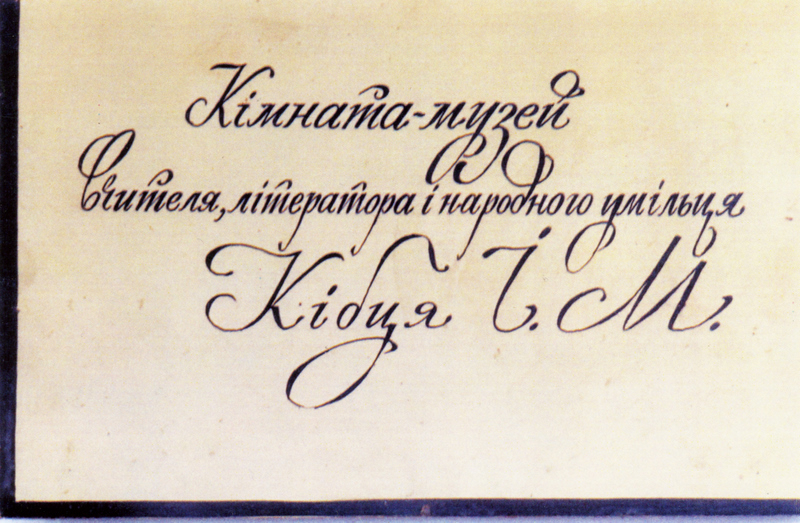 Кімната-музей
вчителя, літератора і народного умільця
Кібця І. М.